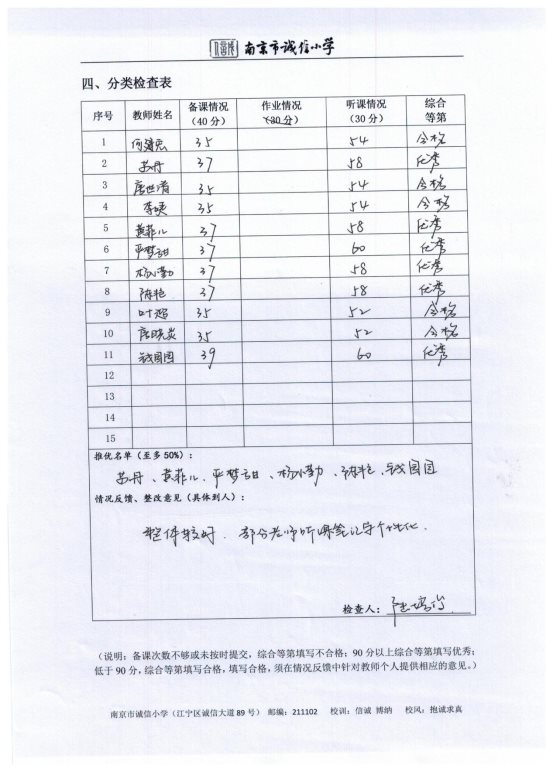 南京市诚信小学
四、分类检查表
序号 教师姓名 备课情况（40分） 作业情况（30分） 听课情况（30分） 综合等第
1 35 54 合格
2 苏丹 37 58 优秀
3 唐世清 35 54 合格
4 李瑛 35 54 合格
5 黄菲儿 37 58 优秀
6 严梦甜 37 60 优秀
7 杨小勤 37 58 优秀
8 陈艳 37 58 优秀
9 叶超 35 52 合格
10 唐晓炎 35 52 合格
11 钱园园 39 60 优秀
12
13
14
15
推优名单（至多50%）：
苏丹、黄菲儿、严梦甜、杨小勤、陈艳、钱园园
情况反馈、整改意见（具体到人）：
整体较好，部分老师听课笔记字个性化.
检查人：
（说明：备课次数不够或未按时提交，综合等第填写不合格；90分以上综合等第填写优秀；
低于90分，综合等第填写合格，填写合格，须在情况反馈中针对教师个人提供相应的意见。）
南京市诚信小学（江宁区诚信大道89号） 邮编：211102 校训：信诚 博纳 校风：抱诚求真